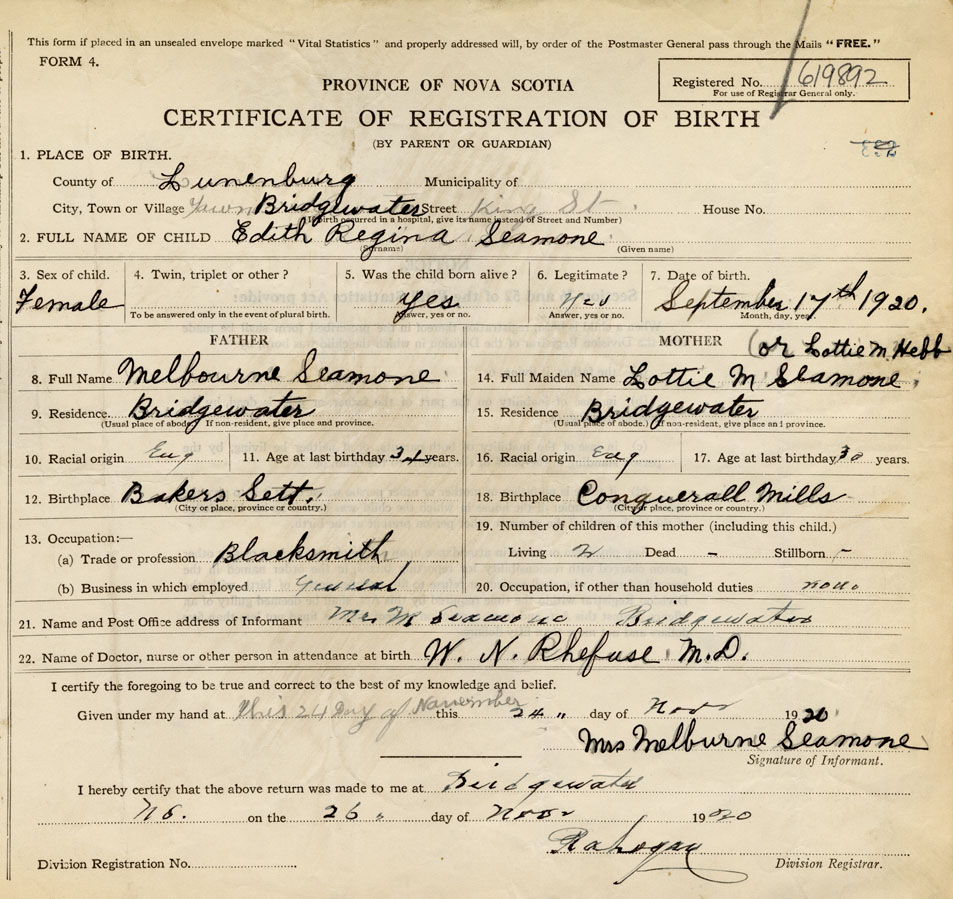 This form if placed in an unsealed envelope marked "Vital Statistics" and properly addressed will, by order of the Postmaster General pass through the Mails "FREE."
FORM 4.
Registered No. 619892
For use of Registrar General only.
PROVINCE OF NOVA SCOTIA
CERTIFICATE OF REGISTRATION OF BIRTH
(BY PARENT OR GUARDIAN)
1. PLACE OF BIRTH.
County of Lunenburg Municipality of
City, Town or Village Town Bridgewater Street King St. House No.
(If birth occurred in a hospital, give its name instead of Street and Number)
2. FULL NAME OF CHILD Edith Regina Seamone
(Surname) (Given name)
3. Sex of child. 4. Twin, triplet or other? 5. Was the child born alive? 6. Legitimate? 7. Date of birth.
Female Yes September 17th 1920.
To be answered only in the event of plural birth. Answer, yes or no. Answer, yes or no. Month, day, year.
FATHER MOTHER (or Lottie M Hebb
8. Full Name Melbourne Seamone 14. Full Maiden Name Lottie M Seamone
9. Residence Bridgewater 15. Residence Bridgewater
(Usual place of abode.) If non-resident, give place and province. (Usual place of abode.) If non-resident, give place and province.
10. Racial origin Eng 11. Age at last birthday 34 years. 16. Racial origin Eng 17. Age at last birthday 30 years.
12. Birthplace Bakers Sett. 18. Birthplace Conquerall Mills
(City or place, province or country.) (City or place, province or country.)
13. Occupation:— 19. Number of children of this mother (including this child.)
(a) Trade or profession Blacksmith Living Dead - Stillborn -
(b) Business in which employed General 20. Occupation, if other than household duties none
21. Name and Post Office address of Informant Mrs M Seamone Bridgewater
22. Name of Doctor, nurse or other person in attendance at birth W. N. Rhefuse M.D.
I certify the foregoing to be true and correct to the best of my knowledge and belief.
Given under my hand at this 24 Day of November this 24 " day of Nov 1920
Mrs Melburne Seamone
Signature of Informant.
I hereby certify that the above return was made to me at Bridgewater
N.S. on the 26 " day of Nov 1920
Division Registration No. Division Registrar.